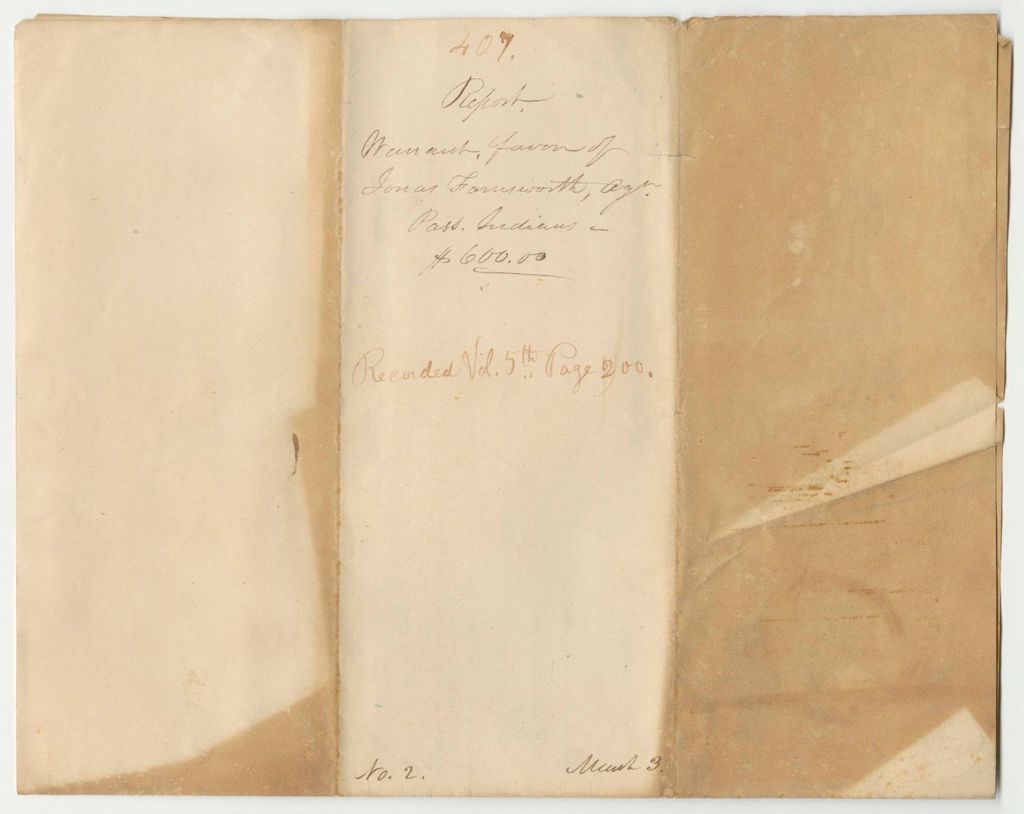 407.
Report.
Warrant, favor of
Jonas Farnsworth, Agt.
Pass. Indians -
$600.00
Recorded Vol. 5th Page 200.
No. 2.
March 3.